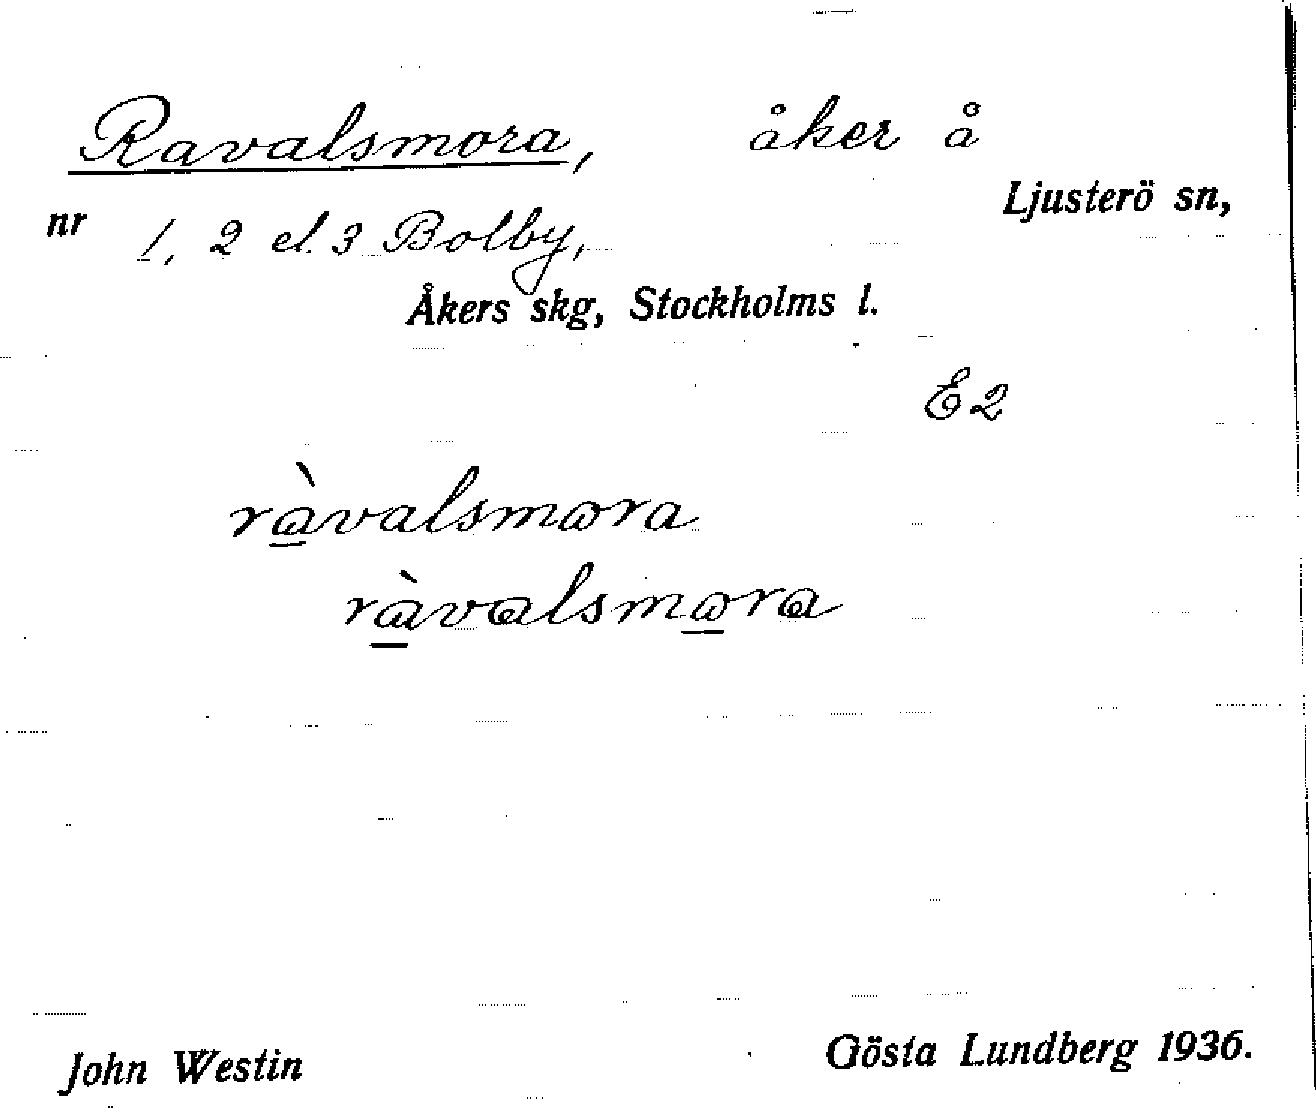 Ravalsmora, åker å
Ljusterö sn,
nr 1, 2 el. 3 Bolby,
Åkers skg, Stockholms l.
E2
ràvalsmɷra
ràvalsmɷra
John Westin
Gösta Lundberg 1936.